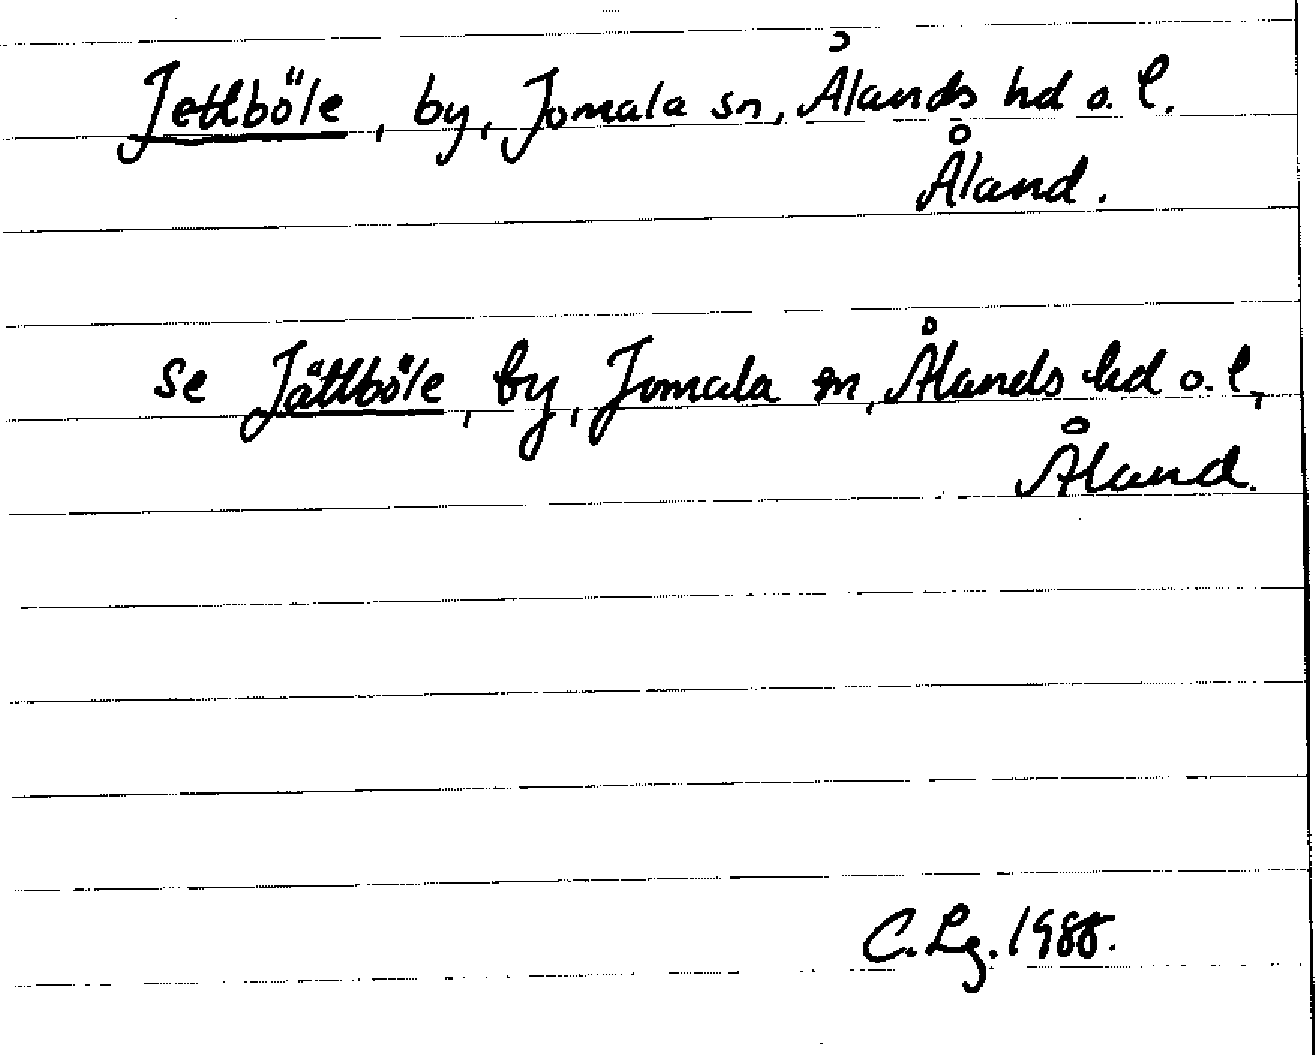 Jettböle, by, Jomala sn, Ålands hd o. l.
Åland.
se Jättböle, by, Jomala sn, Ålands hd o. l,
Åland.
C. Lg. 1988.